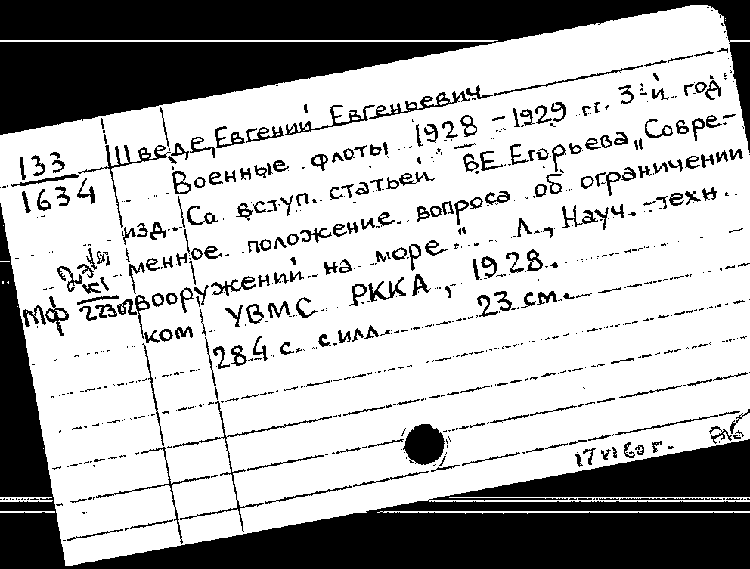 133
1634
Шведе, Евгений Евгеньевич
Военные флоты 1928-1929 гг. 3-й год
изд. Со вступ. статьей В Е Егорьева „Совре-
менное положение вопроса об ограничении
вооружений на море". Л., Науч.-техн.
ком УВМС РККА, 1928.
284 с. с илл. 23 см.
Мф
22302
17 VI 60 г.